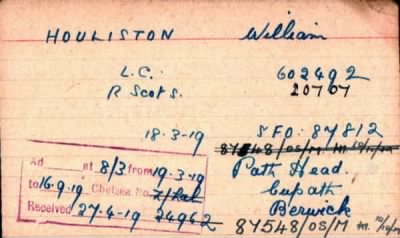 HOULISTON William
L.C. 602492
R Scots. 20707
18.3-19 S.F.O: 87812
87548/OS/M
Ad at 8/3 from 19.3-19
to 16.9-19 Chelsea No.
Received 27-4-19 24962
Path Head.
Cupath
Berwick
87548/OS/M